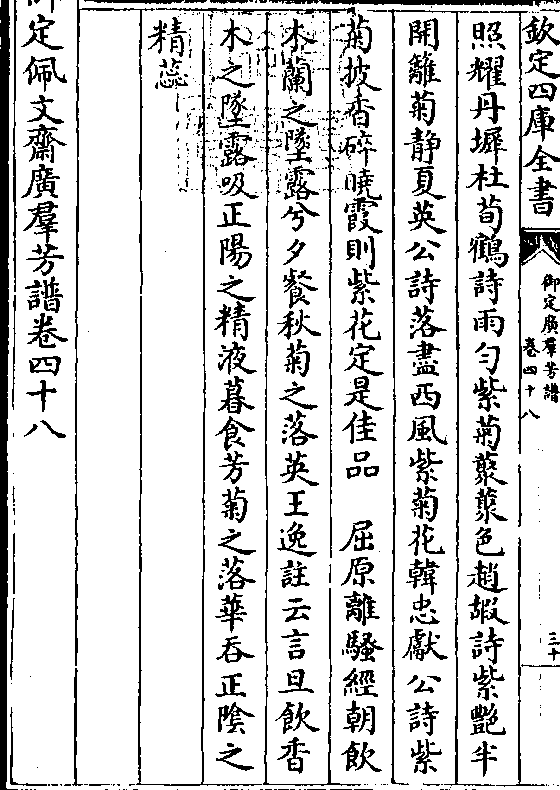 欽定四庫全書
御定廣羣芳譜
卷四十八
三十
照耀丹墀杜荀鶴詩雨勻紫菊藂藂色趙嘏詩紫艷半
開籬菊静夏英公詩落盡西風紫菊花韓忠獻公詩紫
菊披香碎曉霞則紫花定是佳品　屈原離騷經朝飲
木蘭之墜露兮夕餐秋菊之落英王逸註云言旦飲香
木之墜露吸正陽之精液暮食芳菊之落華吞正陰之
精蕊
御定佩文齋廣羣芳譜卷四十八